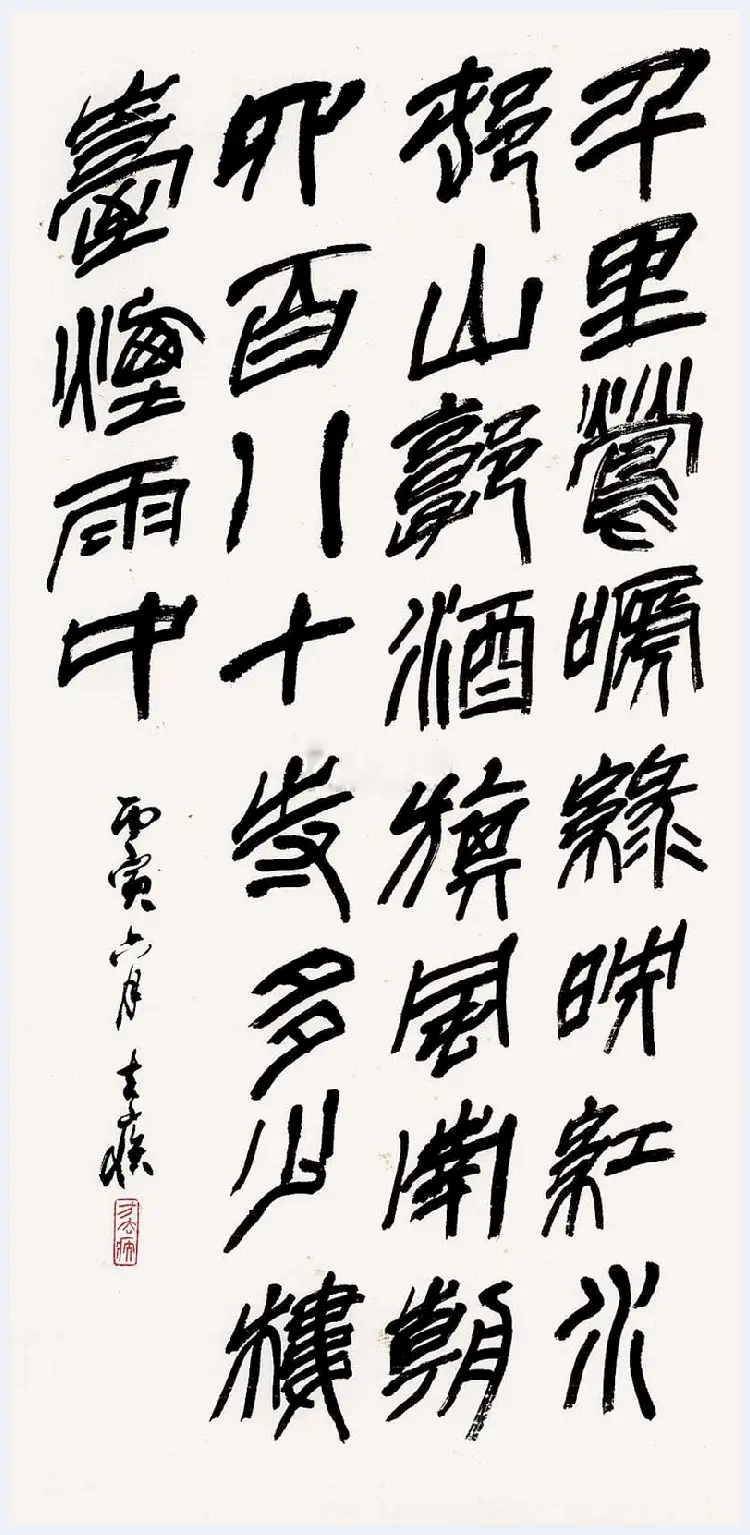 千里鶯嗁綠映紅水
邨山郭酒旗風南朝
四百八十寺多少樓
臺煙雨中
丙寅六月 去疾
方去疾